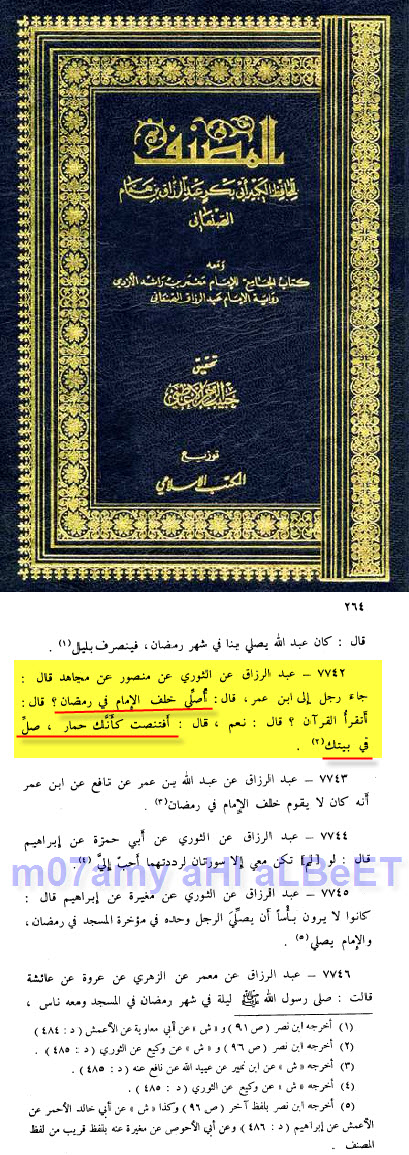 المصنف
للحافظ الكبير أبي بكر عبد الرزاق بن همام
الصنعاني
ومعه
كتاب الجامع للإمام معمر بن راشد الأزدي
رواية الإمام عبد الرزاق الصنعاني
تحقيق
حبيب الرحمن الأعظمي
توزيع
المكتب الإسلامي
٢٦٤
قال : كان عبد الله يصلي بنا في شهر رمضان ، فينصرف بليل (١) .
٧٧٤٢ – عبد الرزاق عن الثوري عن منصور عن مجاهد قال :
جاء رجل إلى ابن عمر ، قال : أُصلِّي خلف الإمام في رمضان ؟ قال :
أتقرأُ القرآن ؟ قال : نعم ، قال : أفتنصت كأَنَّك حمار ، صلِّ
في بيتك (٢) .
٧٧٤٣ – عبد الرزاق عن عبد الله بن عمر عن نافع عن ابن عمر
أنه كان لا يقوم خلف الإمام في رمضان (٣) .
٧٧٤٤ – عبد الرزاق عن الثوري عن أبي حمزة عن إبراهيم
قال : لو [لم] تكن معي إلا سورتان لرددتهما أحبّ إليَّ (٤) .
m07amy aHl aLBeET
٧٧٤٥ – عبد الرزاق عن الثوري عن مغيرة عن إبراهيم قال :
كانوا لا يرون بأْساً أن يصلِّيَ الرجل وحده في مؤخرة المسجد في رمضان ،
والإمام يصلي (٥) .
٧٧٤٦ – عبد الرزاق عن معمر عن الزهري عن عروة عن عائشة
قالت : صلى رسول الله ﷺ ليلة في شهر رمضان في المسجد ومعه ناس ،
(١) أخرجه ابن نصر ( ص ٩١ ) و « ش » عن أبي معاوية عن الأعمش ( د : ٤٨٤ )
(٢) أخرجه ابن نصر ( ص ٩٦ ) و « ش » عن وكيع عن الثوري ( د : ٤٨٥ ) .
(٣) أخرجه « ش » عن ابن نمير عن عبيد الله عن نافع عنه ( د : ٤٨٥ ) .
(٤) أخرجه « ش » عن وكيع عن الثوري ( د : ٤٨٥ ) .
(٥) أخرجه ابن نصر بلفظ آخر ( ص ٩٦ ) وكذا « ش » عن أبي خالد الأحمر عن
الأعمش عن إبراهيم ( د : ٤٨٦ ) وعن أبي الأحوص عن مغيرة عنه بلفظ قريب من لفظ
المصنف .